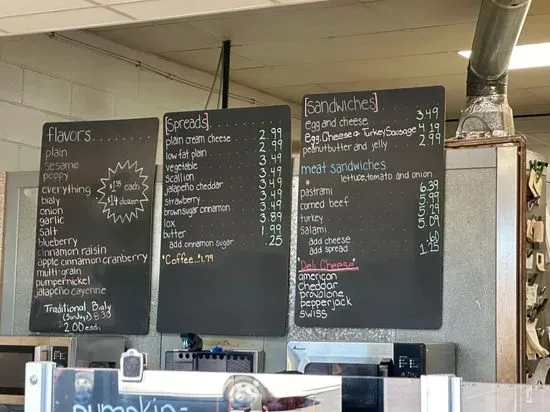 flavors
plain
sesame
poppy
everything
bialy
onion
garlic
salt
blueberry
cinnamon raisin
apple cinnamon cranberry
multi-grain
pumpernickel
jalapeño cayenne
each
$14 dozen
Traditional Bialy
(Sunday)
2.00 each
[Spreads]
plain cream cheese 2.99
low fat plain 2.99
vegetable 3.49
scallion 3.49
jalapeño cheddar 3.49
strawberry 3.49
brown sugar cinnamon 3.49
lox 3.89
butter 1.99
add cinnamon sugar .25
*Coffee..$1.79
[Sandwiches]
egg and cheese 3.49
egg, Cheese & Turkey Sausage 4.19
peanut butter and jelly 2.99
meat sandwiches
lettuce, tomato and onion
pastrami 6.39
corned beef 5.99
turkey 5.19
salami 5.09
add cheese .60
add spread 1.75
"Deli Cheese"
american
cheddar
provolone
pepperjack
swiss
pumpkin-